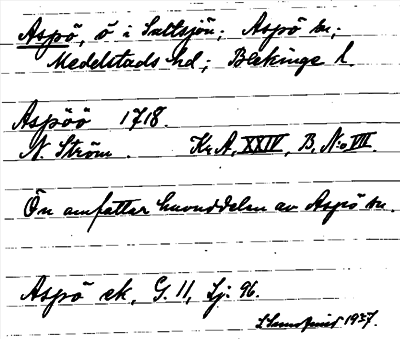 Aspö, ö i Saltsjön; Aspö sn;
Medelstads hd; Blekinge l.
Aspöö 1718.
N. Ström. Kr.A, XXIV, B, N:o VII.
Ön omfattar huvuddelen av Aspö sn.
Aspö ek, G. 11, Lj. 96.
1937.